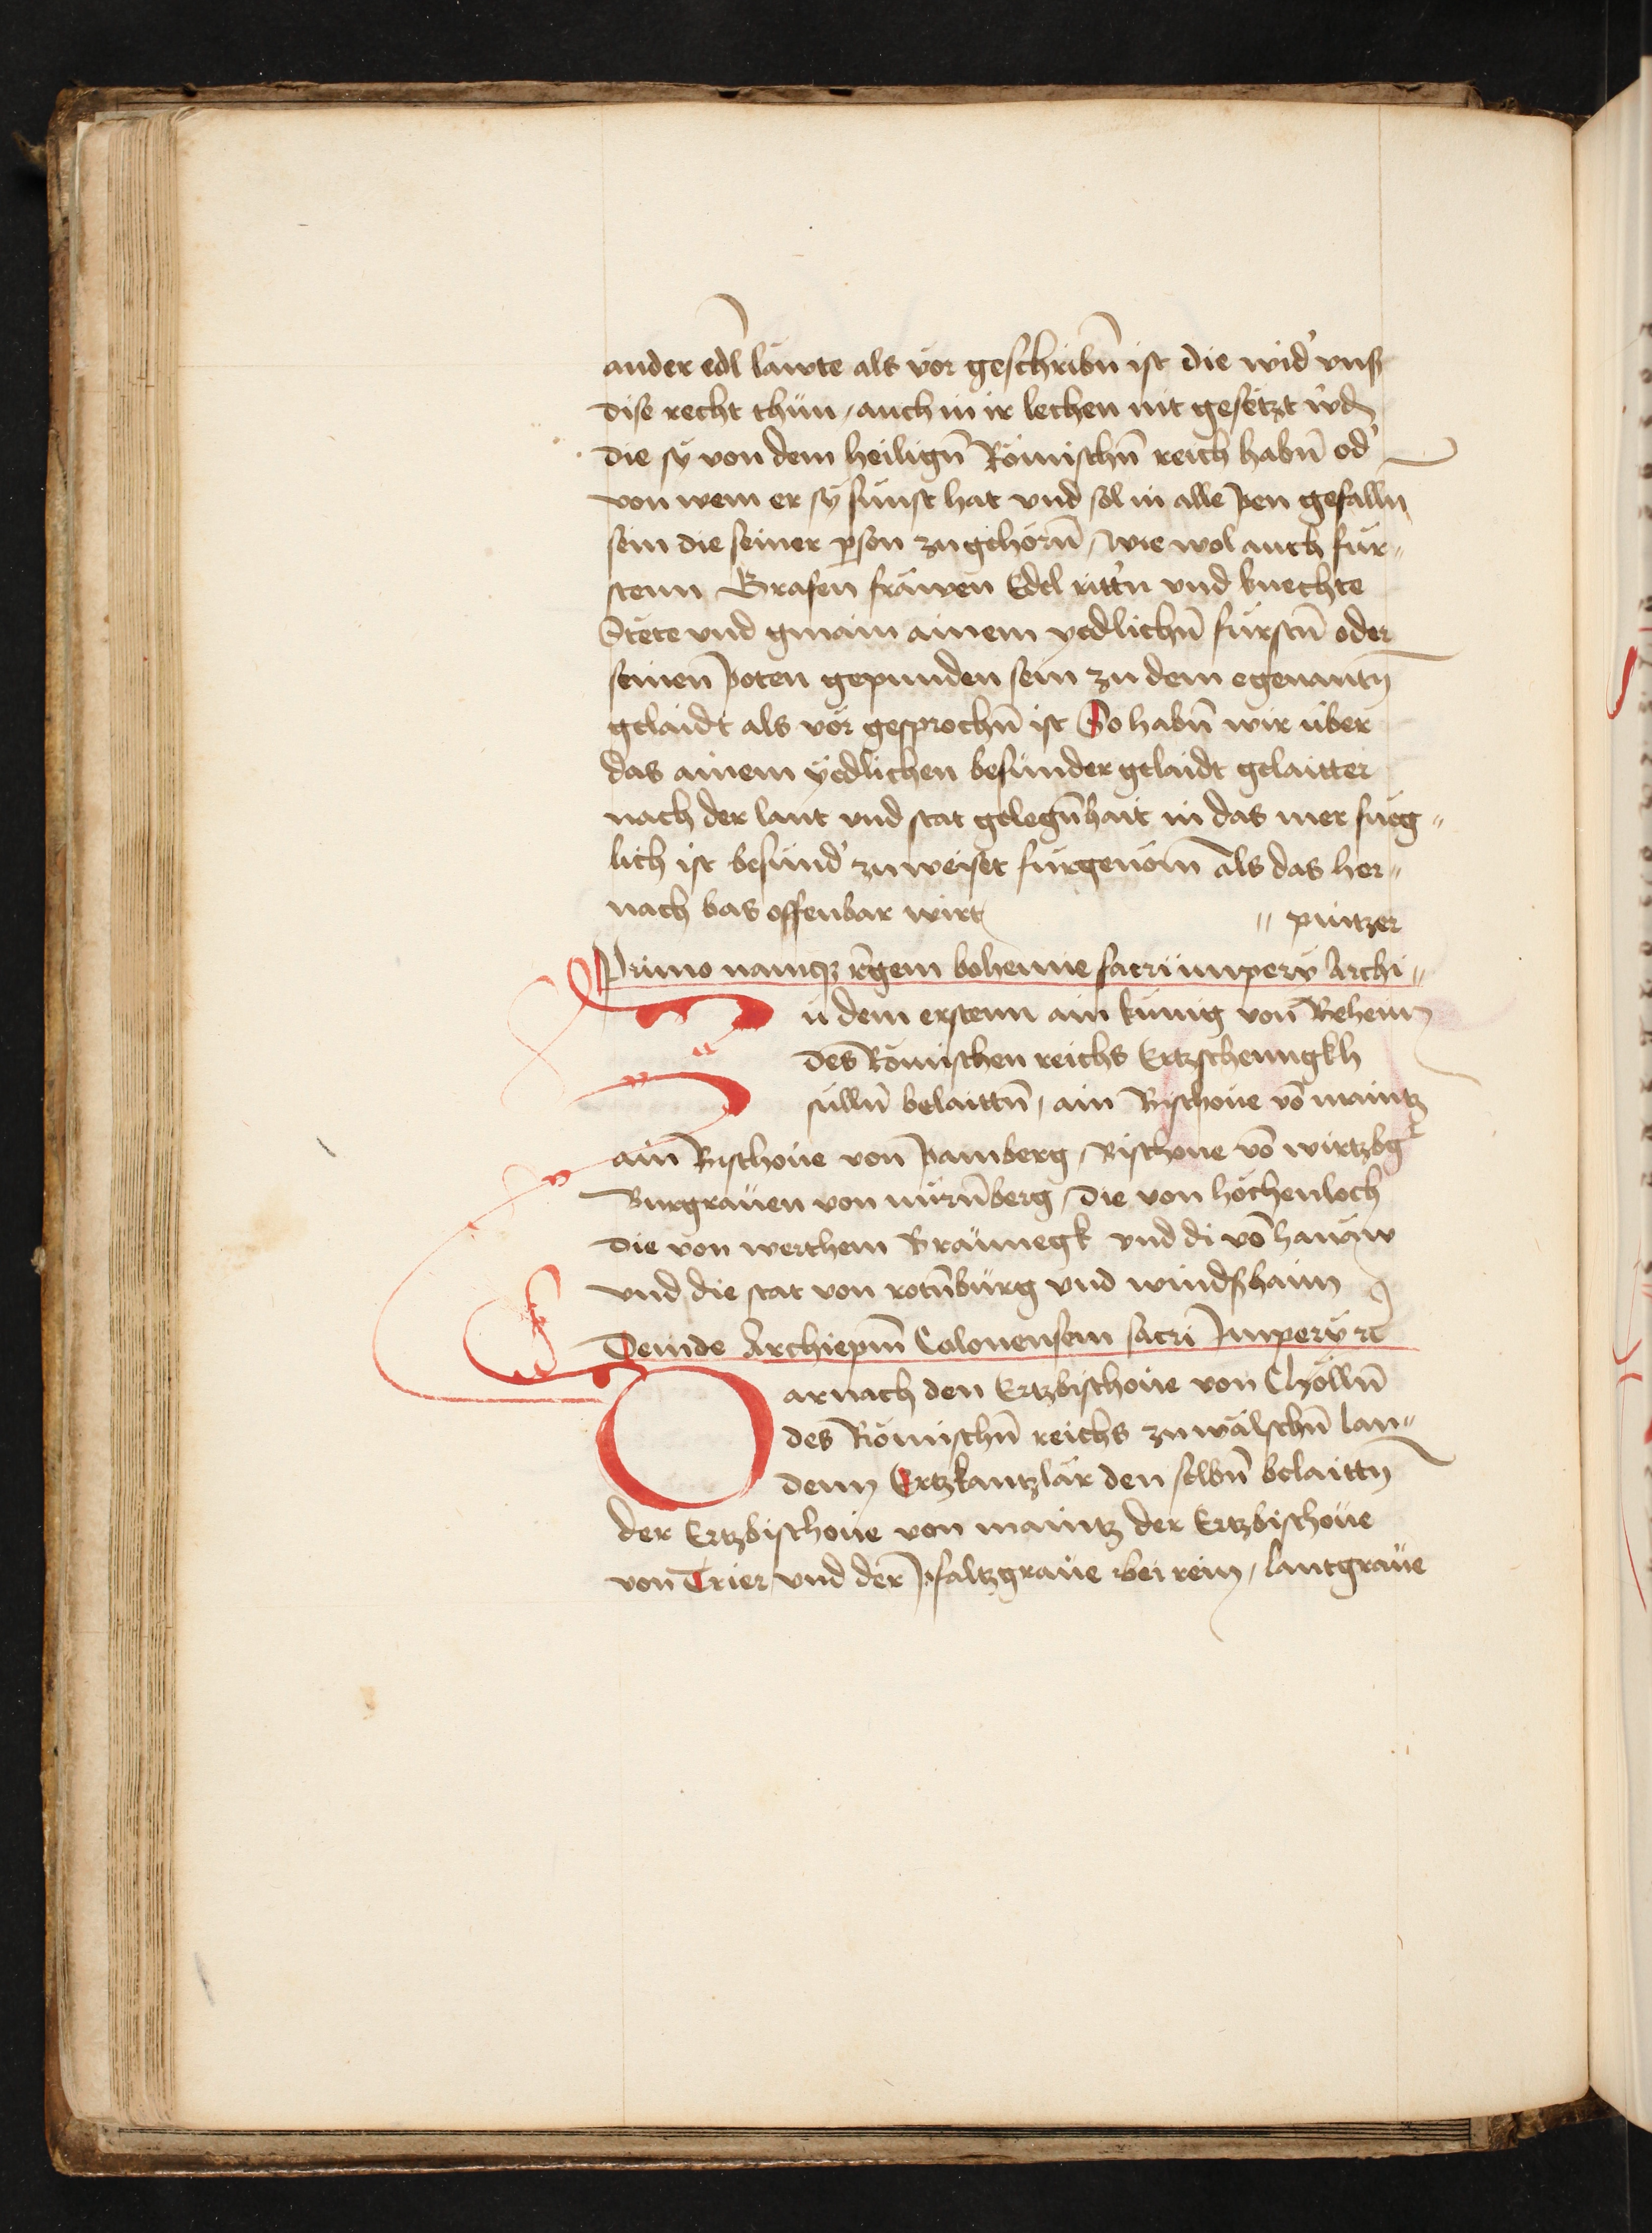 ander edl läwte als vor geschribn̄ ist die wid' vnß
dise recht thün / auch in ir lechen nit gesetzt w'dn
die sÿ von dem heilign̄ Römischn̄ reich habn̄ od'
von wem er sÿ sünst hat vnd sol in alle pen gefalln
sein die seiner pson zugehörn̄ / Wie wol auch für„
stenn Grafen fräwen Edel ritt'n vnd knechte
Stete vnd gmain ainem yedlichn̄ fürstn̄ oder
seinen poten gepunden sein zu dem egenantn
gelaidt als vör gesprochn̄ ist So habn̄ wir über
das ainem ÿedlichen besünder gelaidt gelaitter
nach der lant vnd stat gelegn̄hait in das mer füeg„
lich ist besünd' zuweiset fürgenöm als das her„
nach bas offenbar wirt
„ pintzer
Primo namqz r̄gem bohemie sacri imperÿ Archi„
Zü dem erstenn ain künig von Beheim
des Römischen reichs Ertzschenngkh
sülln̄ belaittn̄ / ain Bischöue vō maintz
ain Bischoüe von pamberg / Bischoue vō wirtzbg
Burgräuen von nürn̄berg / die von höchenloch
die von werthem Bräünegk vnd di vō hanäw
vnd die stat von rotn̄bürg vnd windshaim
Deinde Archiepm̄ Colonensem sacri Imperÿ rc
Darnach den Ertzbischöüe von Chölln̄
des Römischn̄ reichs zu wälschn̄ lan„
denn Ertzkantzlär den selbn̄ belaittn
der Ertzbischoüe von maintz der Ertzbischöüe
von Trier / vnd der pfaltzgraüe bei rein / lantgraüe